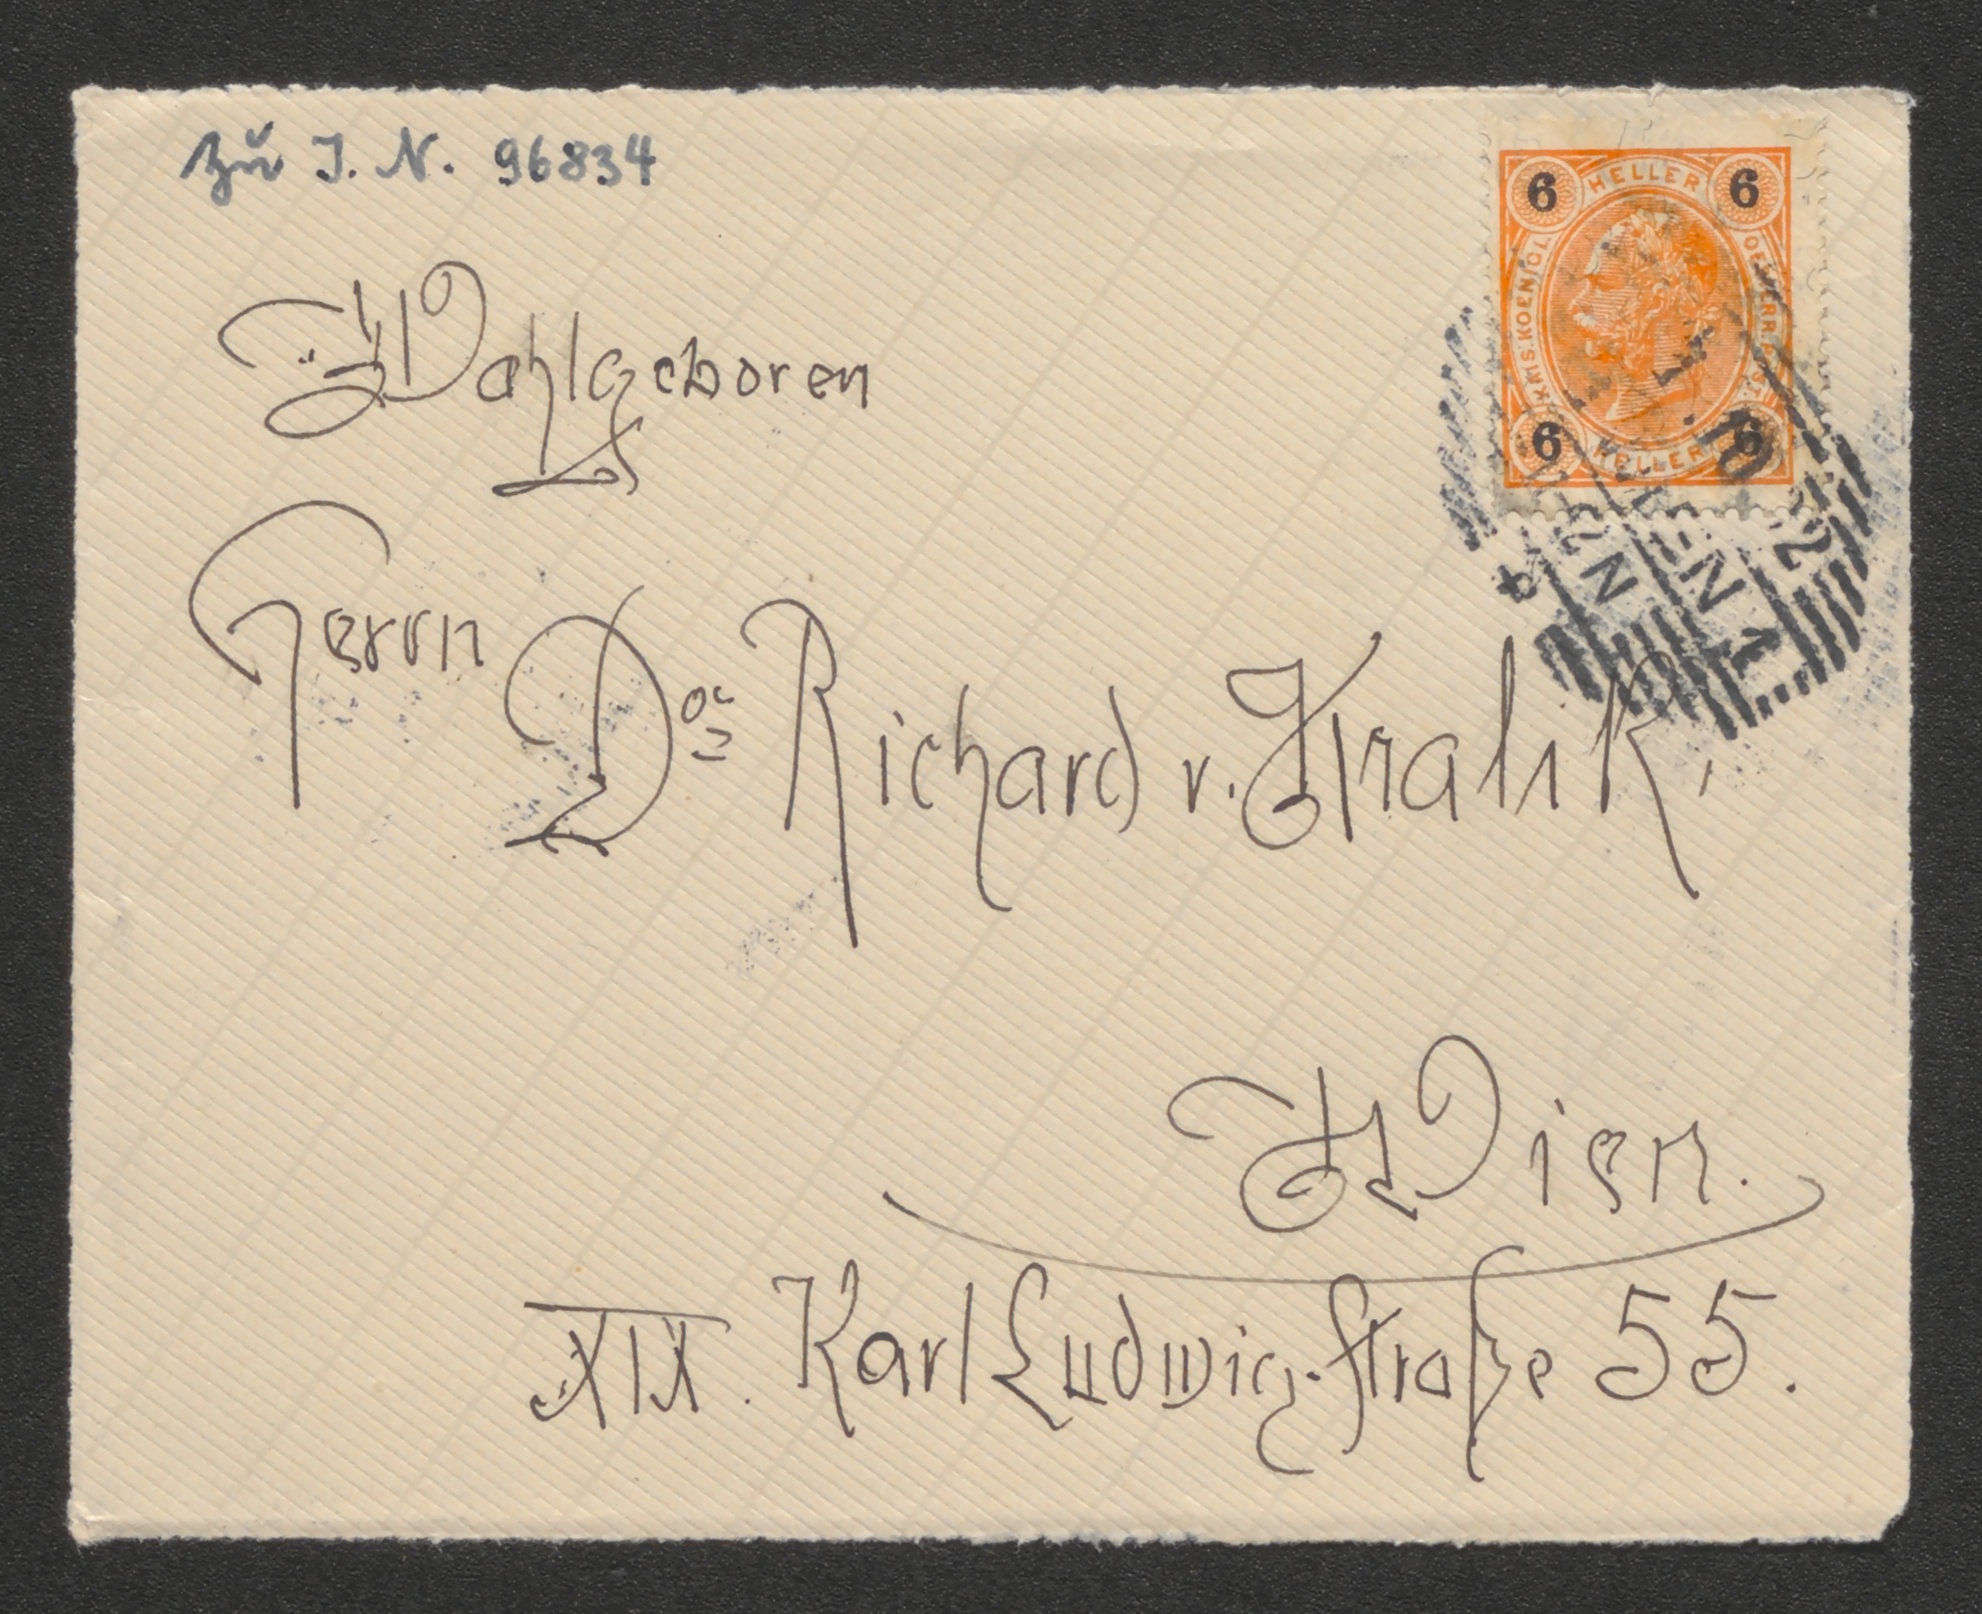 Zu I. N. 96834
6 HELLER 6
KAIS. KOENIGL. OESTERR. POST
6 HELLER 6
Wohlgeboren
Herrn Dor Richard v. Kralik,
Wien.
XIX. Karl Ludwig-Straße 55.